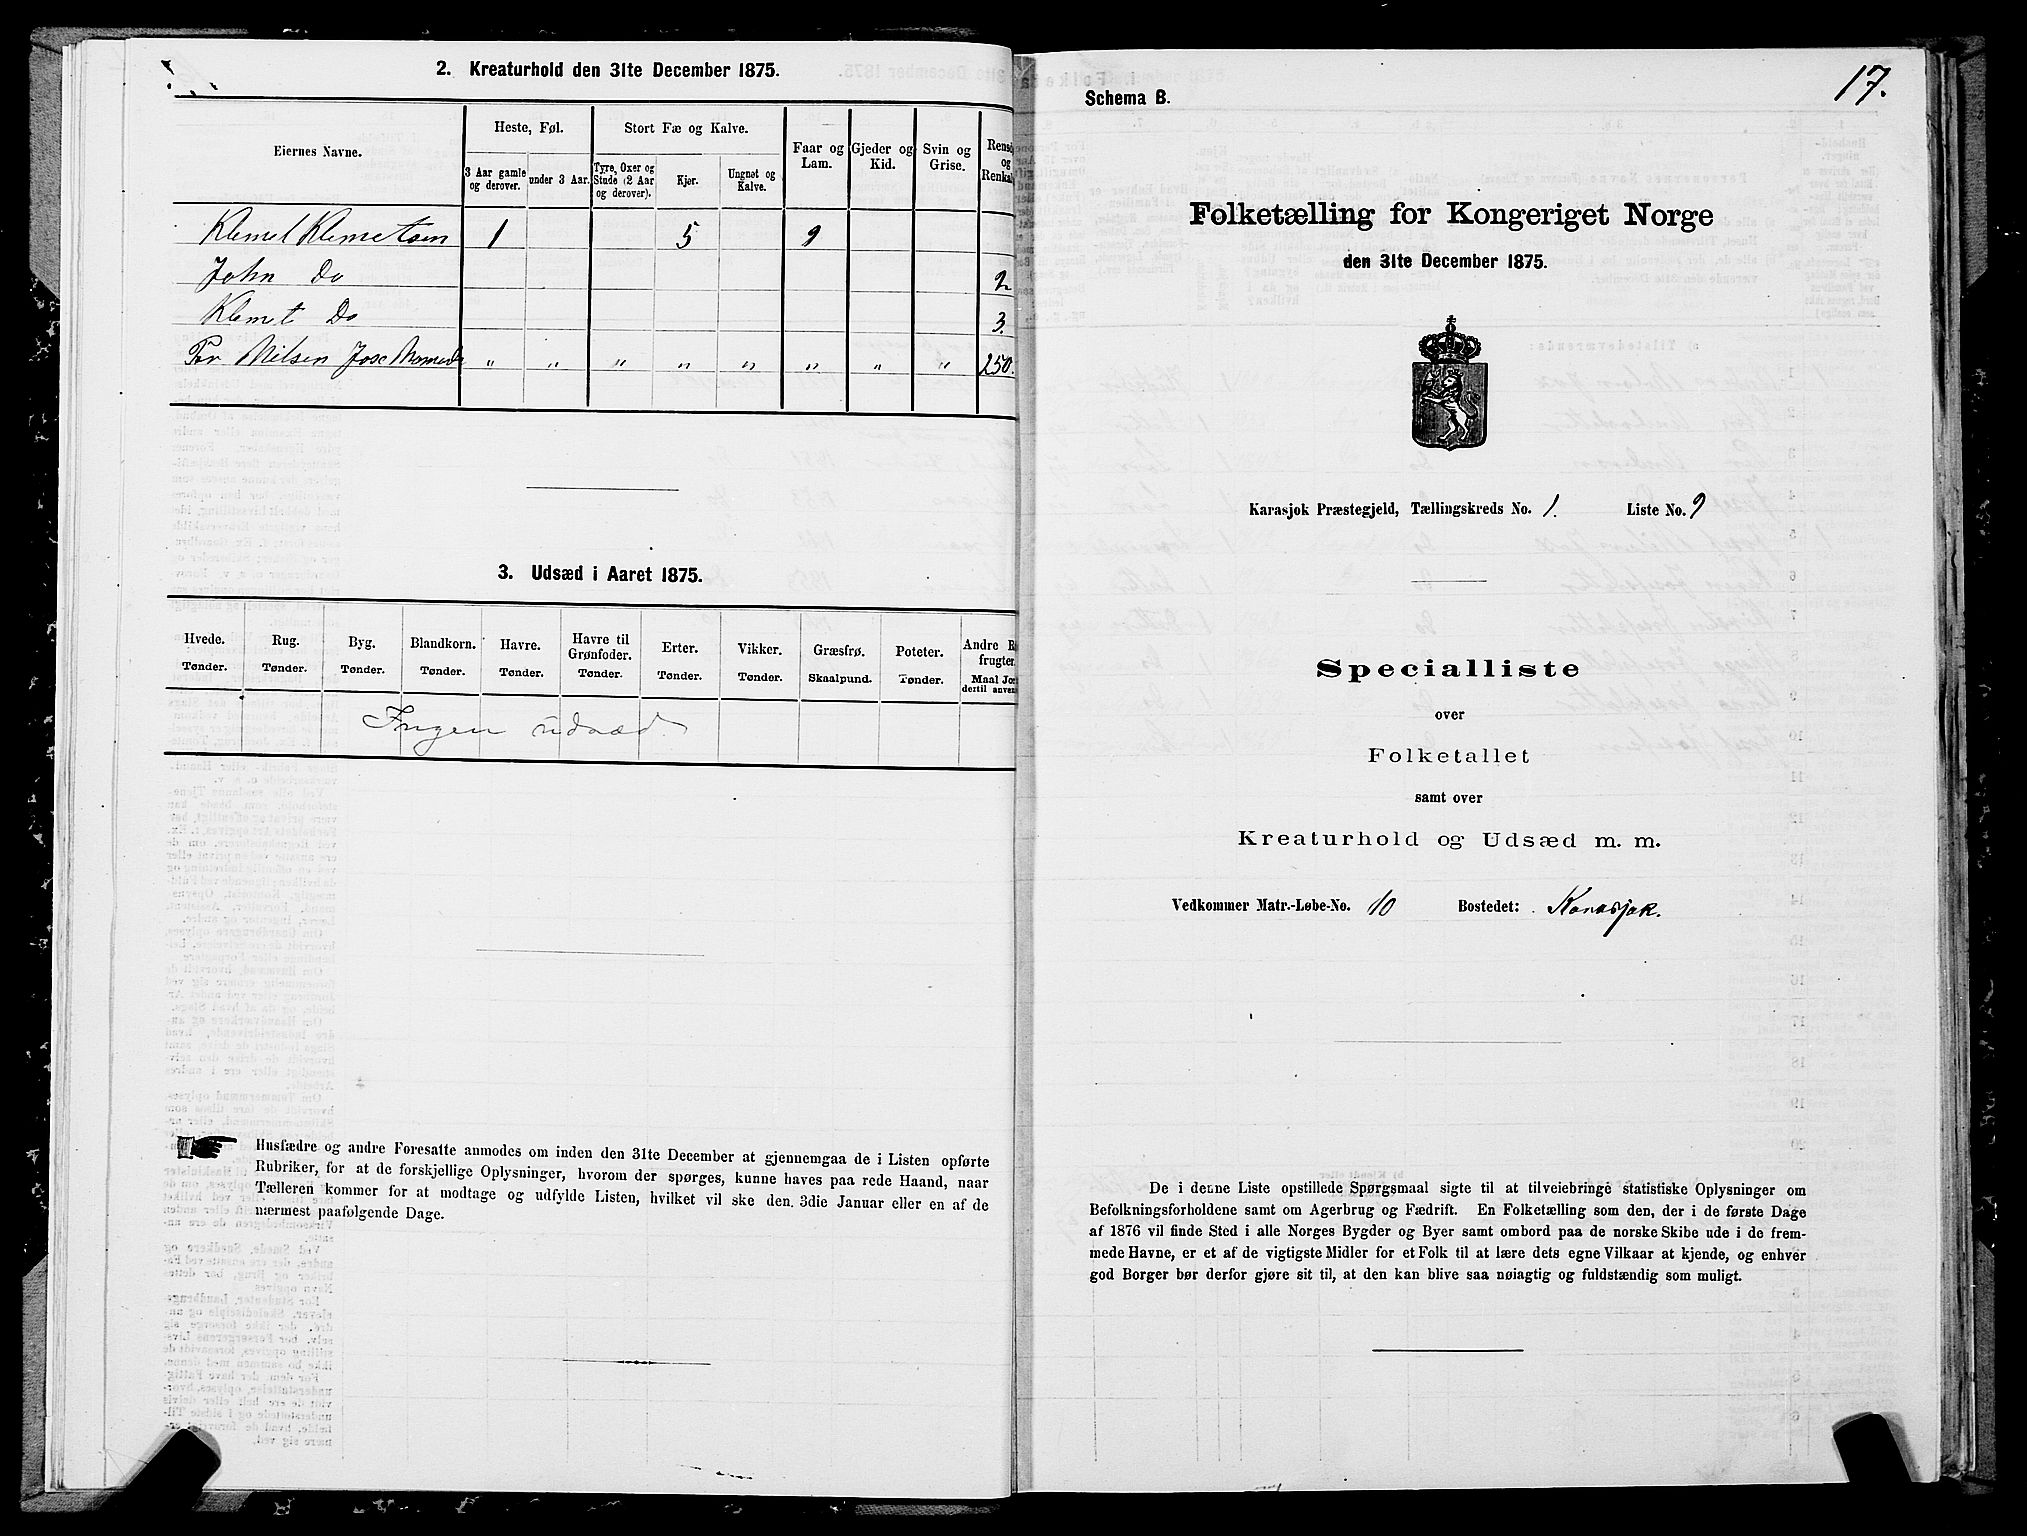 2. Kreaturhold den 31te December 1875.
Eiernes Navne.
Heste, Føl.
Stort Fæ og Kalve.
Faar og Lam.
Gjeder og Kid.
Svin og Grise.
3 Aar gamle og derover.
under 3 Aar.
Tyre, Oxer og Stude (2 Aar og derover).
Kjør.
Ungnøt og Kalve.
Klemet Klemetsen 1 5 9
John Do 2
Klemet Do 3.
Per Nilsen " " " " " " " " 250.
3. Udsæd i Aaret 1875.
Hvede. Rug. Byg. Blandkorn. Havre. Havre til Grønfoder. Erter. Vikker. Græsfrø. Poteter. Andre
Tønder. Tønder. Tønder. Tønder. Tønder. Tønder. Tønder. Tønder. Skaalpund. Tønder. Maal
Ingen udsæd.
Husfædre og andre Foresatte anmodes om inden den 31te December at gjennemgaa de i Listen opførte
Rubriker, for at de forskjellige Oplysninger, hvorom der spørges, kunne haves paa rede Haand, naar
Tælleren kommer for at modtage og udfylde Listen, hvilket vil ske den 3die Januar eller en af de
nærmest paafølgende Dage.
17.
Schema B.
Folketælling for Kongeriget Norge
den 31te December 1875.
Karasjok Præstegjeld, Tællingskreds No. 1. Liste No. 9
Specialliste
over
Folketallet
samt over
Kreaturhold og Udsæd m. m.
Vedkommer Matr.-Løbe-No. 10 Bostedet: Karasjok.
De i denne Liste opstillede Spørgsmaal sigte til at tilveiebringe statistiske Oplysninger om
Befolkningsforholdene samt om Agerbrug og Fædrift. En Folketælling som den, der i de første Dage
af 1876 vil finde Sted i alle Norges Bygder og Byer samt ombord paa de norske Skibe ude i de frem-
mede Havne, er et af de vigtigste Midler for et Folk til at lære dets egne Vilkaar at kjende, og enhver
god Borger bør derfor gjøre sit til, at den kan blive saa nøiagtig og fuldstændig som muligt.